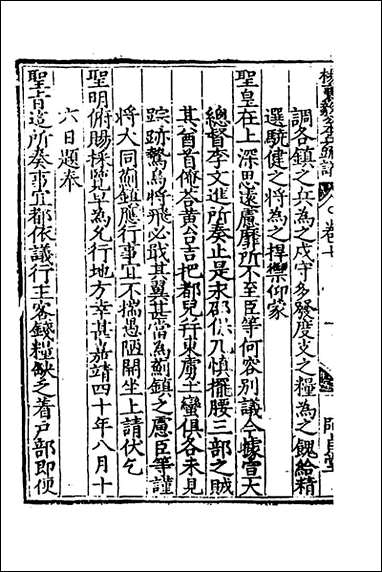 調各鎮之兵為之戍守多發度支之糧為之餽給精
選驍健之將為之捍禦仰蒙
聖皇在上深思遠慮靡所不至臣等何容別議今據宣大
總督李文進所奏正是未卲休乃慎擺腰三部之賊
其酋首俺荅黃台吉把都兒并東虜土蠻俱各未見
踪跡鷙鳥將飛必戢其翼甚當為薊鎮之慮臣等謹
將大同薊鎮應行事宜不揣愚陋開坐上請伏乞
聖明俯賜採覽早為允行地方幸甚嘉靖四十年八月十
六日題奉
聖旨這所奏事宜都依議行主客錢糧缺乏着戶部即便